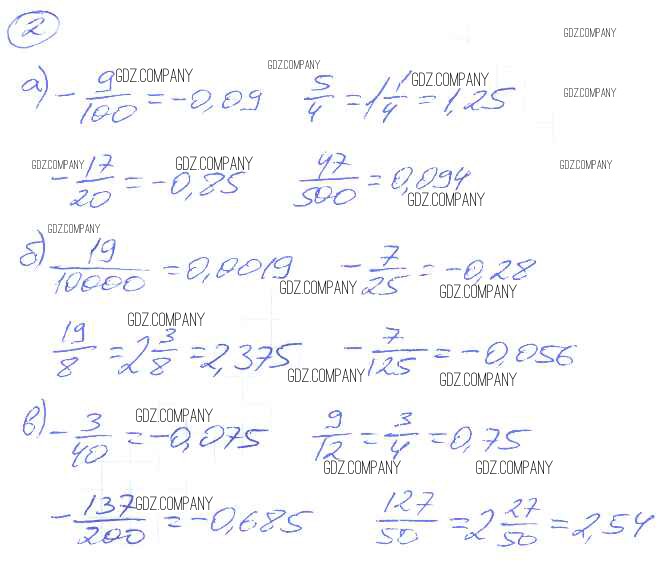 2
GDZ.COMPANY
а) -9/100 = -0,09 5/4 = 1 1/4 = 1,25
GDZ.COMPANY GDZ.COMPANY GDZ.COMPANY GDZ.COMPANY
-17/20 = -0,85 47/500 = 0,094
GDZ.COMPANY GDZ.COMPANY GDZ.COMPANY GDZ.COMPANY
GDZ.COMPANY
б) 19/10000 = 0,0019 -7/25 = -0,28
GDZ.COMPANY GDZ.COMPANY
19/8 = 2 3/8 = 2,375 -7/125 = -0,056
GDZ.COMPANY GDZ.COMPANY GDZ.COMPANY
в) -3/40 = -0,075 9/12 = 3/4 = 0,75
GDZ.COMPANY GDZ.COMPANY GDZ.COMPANY
-137/200 = -0,685 127/50 = 2 27/50 = 2,54
GDZ.COMPANY